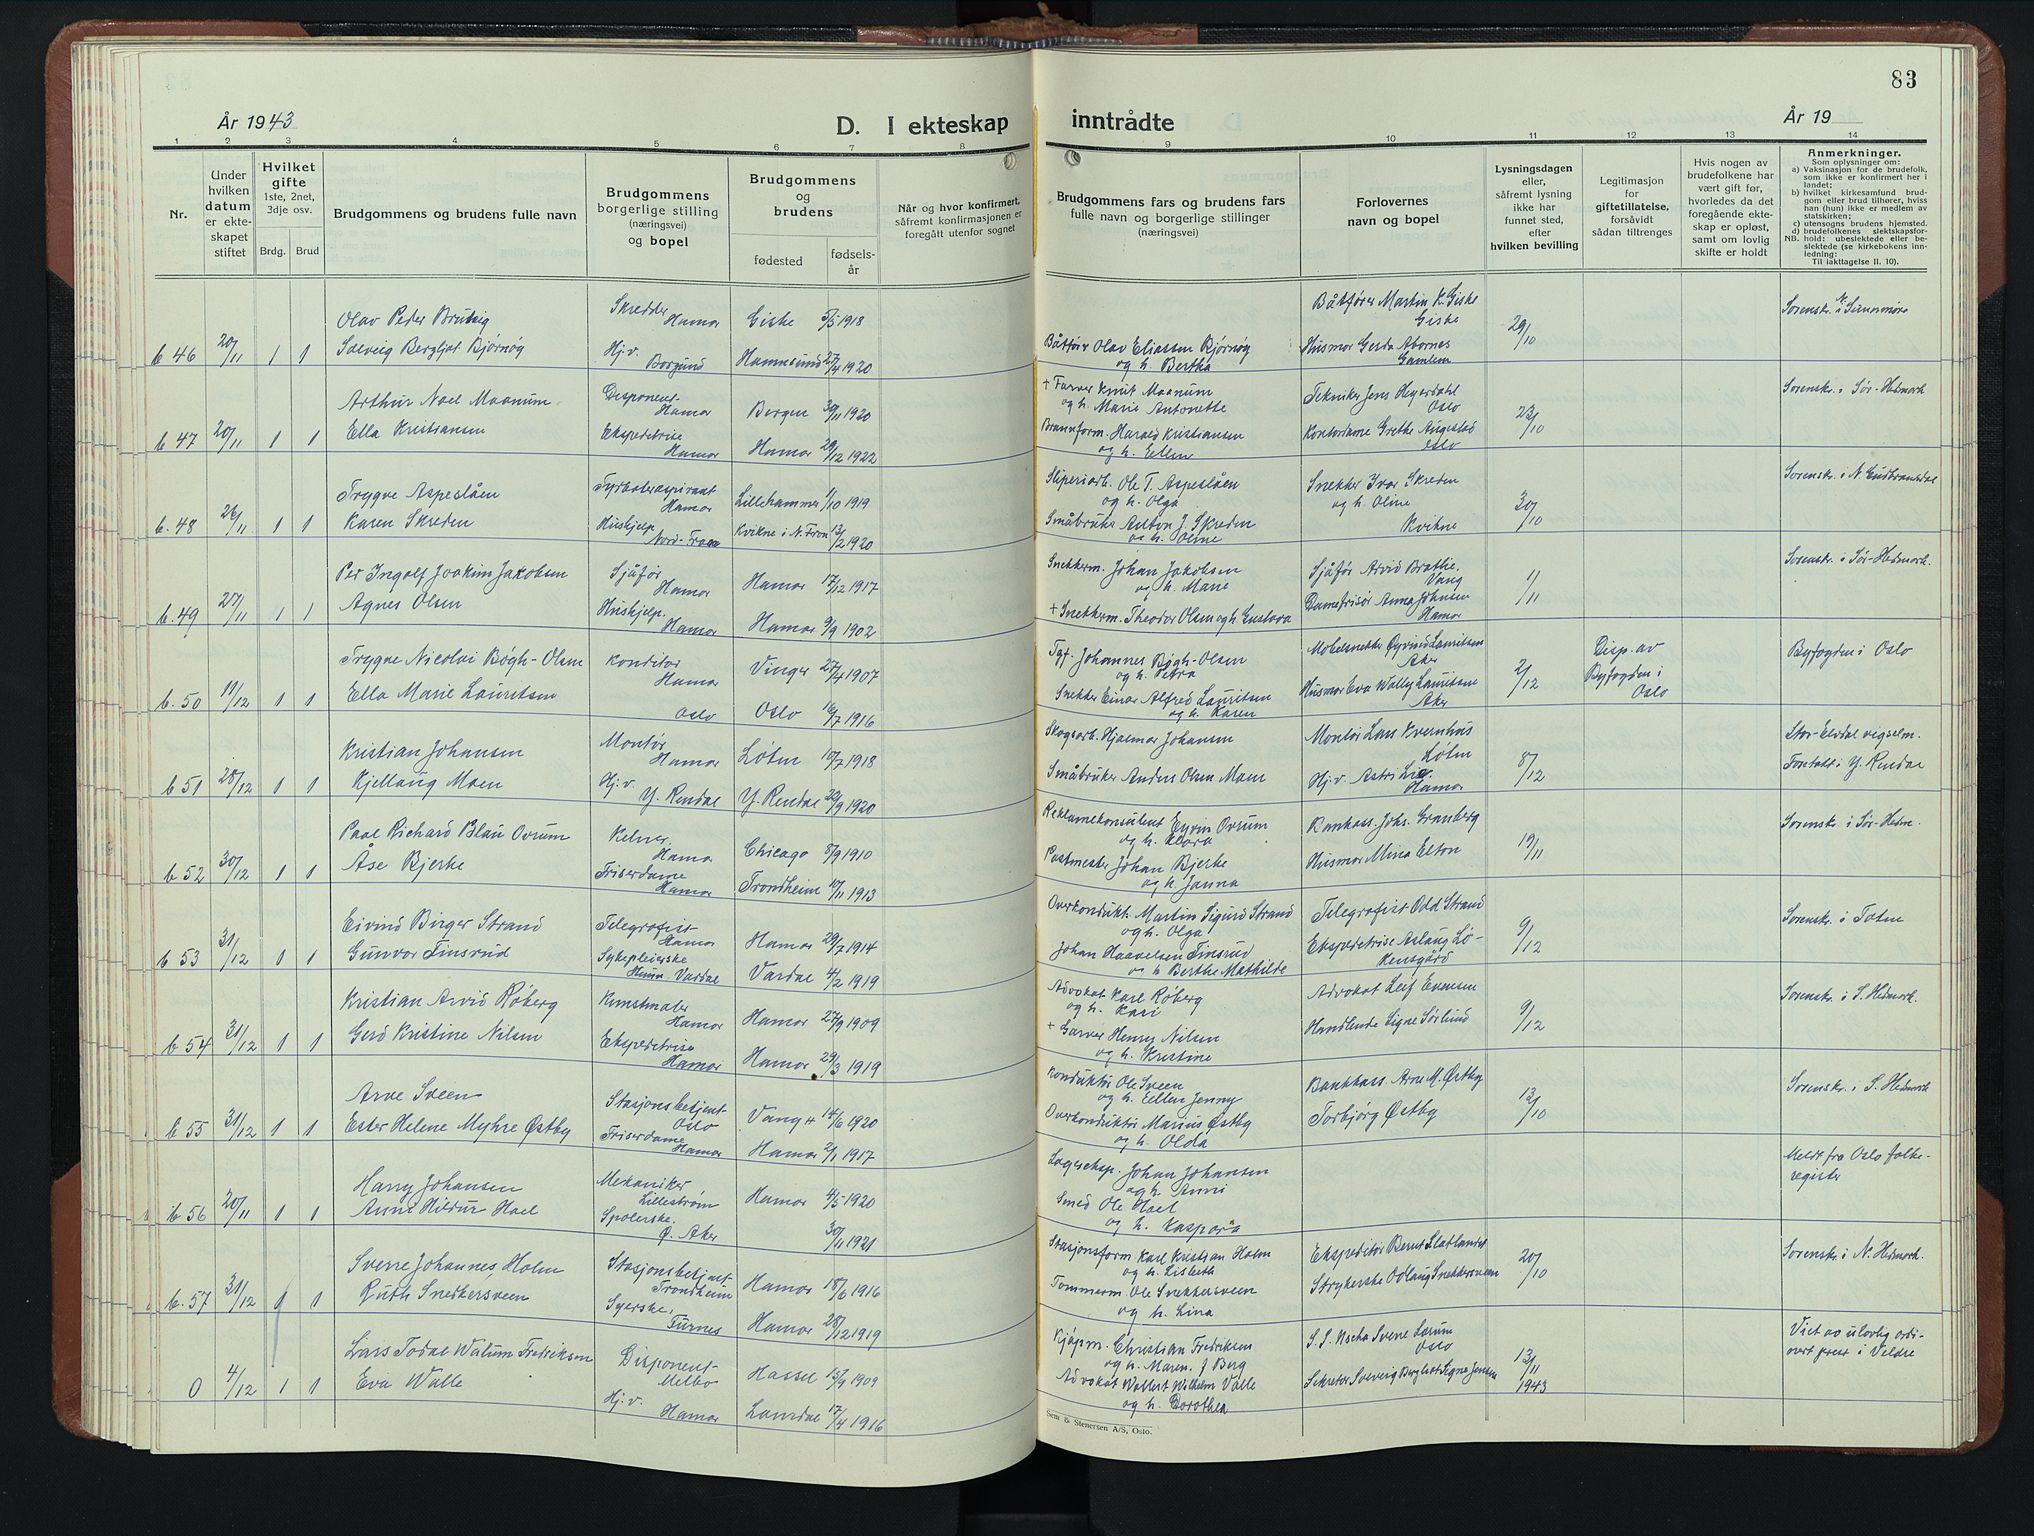 83
År 1943
D. I ekteskap inntrådte
År 19
1 2 3 4 5 6 7 8 9 10 11 12 13 14
Nr.
Under hvilken datum er ekteskapet stiftet
Hvilket gifte
1ste, 2net, 3dje osv.
Brdg. Brud
Brudgommens og brudens fulle navn
Brudgommens borgerlige stilling (næringsvei) og bopel
Brudgommens og brudens
fødested
fødselsår
Når og hvor konfirmert, såfremt konfirmasjonen er foregått utenfor sognet
Brudgommens fars og brudens fars fulle navn og borgerlige stillinger (næringsvei)
Forlovernes navn og bopel
Lysningsdagen eller, såfremt lysning ikke har funnet sted, efter hvilken bevilling
Legitimasjon for giftetillatelse, forsåvidt sådan tiltrenges
Hvis nogen av brudefolkene har vært gift før, hvorledes da det foregående ekteskap er opløst, samt om lovlig skifte er holdt
Anmerkninger.
Som oplysninger om:
a) Vaksinasjon for de brudefolk, som ikke er konfirmert her i landet;
b) hvilket kirkesamfund brudgom eller brud tilhører, hviss han (hun) ikke er medlem av statskirken;
c) utensogns brudens hjemsted.
d) brudefolkenes slektskapsforhold: ubeslektede eller beslektede (se kirkebokens innledning:
NB. Til iakttagelse II. 10).
b 46 20/11 1 1
Olav Peder Brubig Skredder Hamar Giske 5/5 1918 Båtfører Martin K. Giske Giske 29/10 Sorenskr. i N. Sunnmøre
Solveig Bergljot Bjørnøy Hj.v. Borgund Hamnsund 27/4 1920 Båtfører Olav Eliassen Bjørnøy og h. Bertha Husmor Gerda Abornes Gamlem
b 47 20/11 1 1
Arthur Noel Maanum Disponent Hamar Bergen 30/11 1920 + Farver Knut Maanum og h. Marie Antonette Tekniker Jens Heyerdahl Oslo 23/10 Sorenskr. i Sør-Hedmark
Ella Kristiansen Ekspeditrise Hamar Hamar 29/12 1922 Brannform. Harald Kristiansen og h. Ellen Kontordame Grethe Augestad Oslo
b. 48 26/11 1 1
Trygve Aspeslåen Fyrbøteraspirant Hamar Lillehammer 1/10 1919 Sliperiarb. Ole T. Aspeslåen og h. Olga Snekker Ivar Skreden og h. Oline Kvikne 30/10 Sorenskr. i N. Gudbrandsdal
Karen Skreden Hushjelp Nord-Fron Kvikne i N. Fron 13/2 1920 Småbruker Anton J. Skreden og h. Oline
b. 49 27/11 1 1
Per Ingolf Joakim Jakobsen Sjåfør Hamar Hamar 17/12 1917 Snekkerm. Johan Jakobsen og h. Marie Sjåfør Arvid Brathe. Vang 1/11 Sorenskr. i Sør-Hedmark
Agnes Olsen Hushjelp. Hamar Hamar 9/9 1902 + Snekkerm. Theodor Olsen og h. Gustava Damefrisør Anna Johnsen Hamar
b. 50 11/12 1 1
Trygve Nicolai Bøgh-Olsen Konditor Hamar Vinger 27/4 1907 Tgf. Johannes Bøgh-Olsen og h. Petra Møbelsnekker Øyvind Lauritsen Aker 2/12 Disp. av Byfogden i Oslo Byfogden i Oslo
Ella Marie Lauritsen Oslo Oslo 16/7 1916 Snekker Einar Alfred Lauritsen og h. Karen Husmor Eva Wally Lauritsen Aker
b 51 28/12 1 1
Kristian Johansen Montør Hamar Løten 10/7 1918 Skogsarb. Hjalmar Johansen Montør Lars Kvernhus Løten 8/12 Stor-Elvdal vigselm.
Kjellaug Moen Hj.v. Y. Rendal Y. Rendal 22/9 1920 Småbruker Anders Olsen Moen Hj.v. Astri Lie. Hamar Foretatt i Y. Rendal
b 52 30/12 1 1
Paal Richard Blau Ovrum Kelner Hamar Chicago 8/9 1910 Reklamekonsulent Eyvin Ovrum og h. Klara Bankass. Johs. Granberg 19/11 Sorenskr. i Sør-Hedm.
Åse Bjerke Friserdame Hamar Trondheim 10/11 1913 Postmester Johan Bjerke og h. Janna Husmor Mina Elton
b 53 31/12 1 1
Eivind Birger Strand Telegrafist Hamar Hamar 29/7 1914 Overkondukt. Martin Sigurd Strand og h. Olga Telegrafist Odd Strand 9/12 Sorenskr. i Toten
Gunvor Finsrud Sykepleierske Hunn Vardal Vardal 4/2 1919 Johan Haavelsen Finsrud og h Berthe Mathilde Ekspeditrise Aslaug Løkensgård
b 54 31/12 1 1
Kristian Arvid Røberg Kunstmaler Hamar Hamar 27/9 1909 Advokat Karl Røberg og h. Kari Advokat Leif Evensen 9/12 Sorenskr. i S. Hedmark.
Gerd Kristine Nilsen Ekspeditrise Hamar Hamar 29/3 1919 + Garver Henry Nilsen og h. Kristine Handlende Signe Sørlund
b 55 31/12 1 1
Arve Sveen Stasjonsbetjent Oslo Vang H 14/6 1920 Konduktør Ole Sveen og h. Ellen Jenny Bankkass. Arne M. Østby 13/10 Sorenskr. i S. Hedmark
Ester Helene Myhre Østby Friserdame Hamar Hamar 2/1 1917 Overkonduktør Marius Østby og h. Olda Torbjørg Østby
b 56 20/11 1 1
Harry Johansen Mekaniker Lillestrøm Hamar 4/5 1920 Lagereksp. Johan Johansen og h. Anni Meldt fra Oslo folkeregister
Anne Hildur Hoel Spolerske. Ø. Aker 30/11 1921 Smed Ole Hoel og h. Kaspara
b. 57 31/12 1 1
Sverre Johannes Holm Stasjonsbetjent Trondheim Hamar 18/6 1916 Stasjonsform Karl Kristian Holm og h. Lisbeth Ekspeditør Bernt Slatlandet 20/10 Sorenskr. i N. Hedmark.
Ruth Snekkersveen Syerske, Furnes Hamar 28/12 1919 Tømmerm Ole Snekkersveen og h. Lina Strykerske Odlaug Snekkersveen
0 4/12 1 1
Lars Todal Walum Fredriksen Disponent Melbo Hassel 13/9 1909 Kjøpm. Christian Fredriksen og h. Maren J Berg S. S. Sverre Lærum Oslo 13/11 1943 Viet av ulovlig ordinert prest i Veldre
Eva Walle Hj.v. Hamar Laurdal 17/4 1916 Advokat Wollert Wilhelm Valle og h. Dorothea Sekretær Solveig Bergliot Signe Jensen
Sem & Stenersen A/S, Oslo.